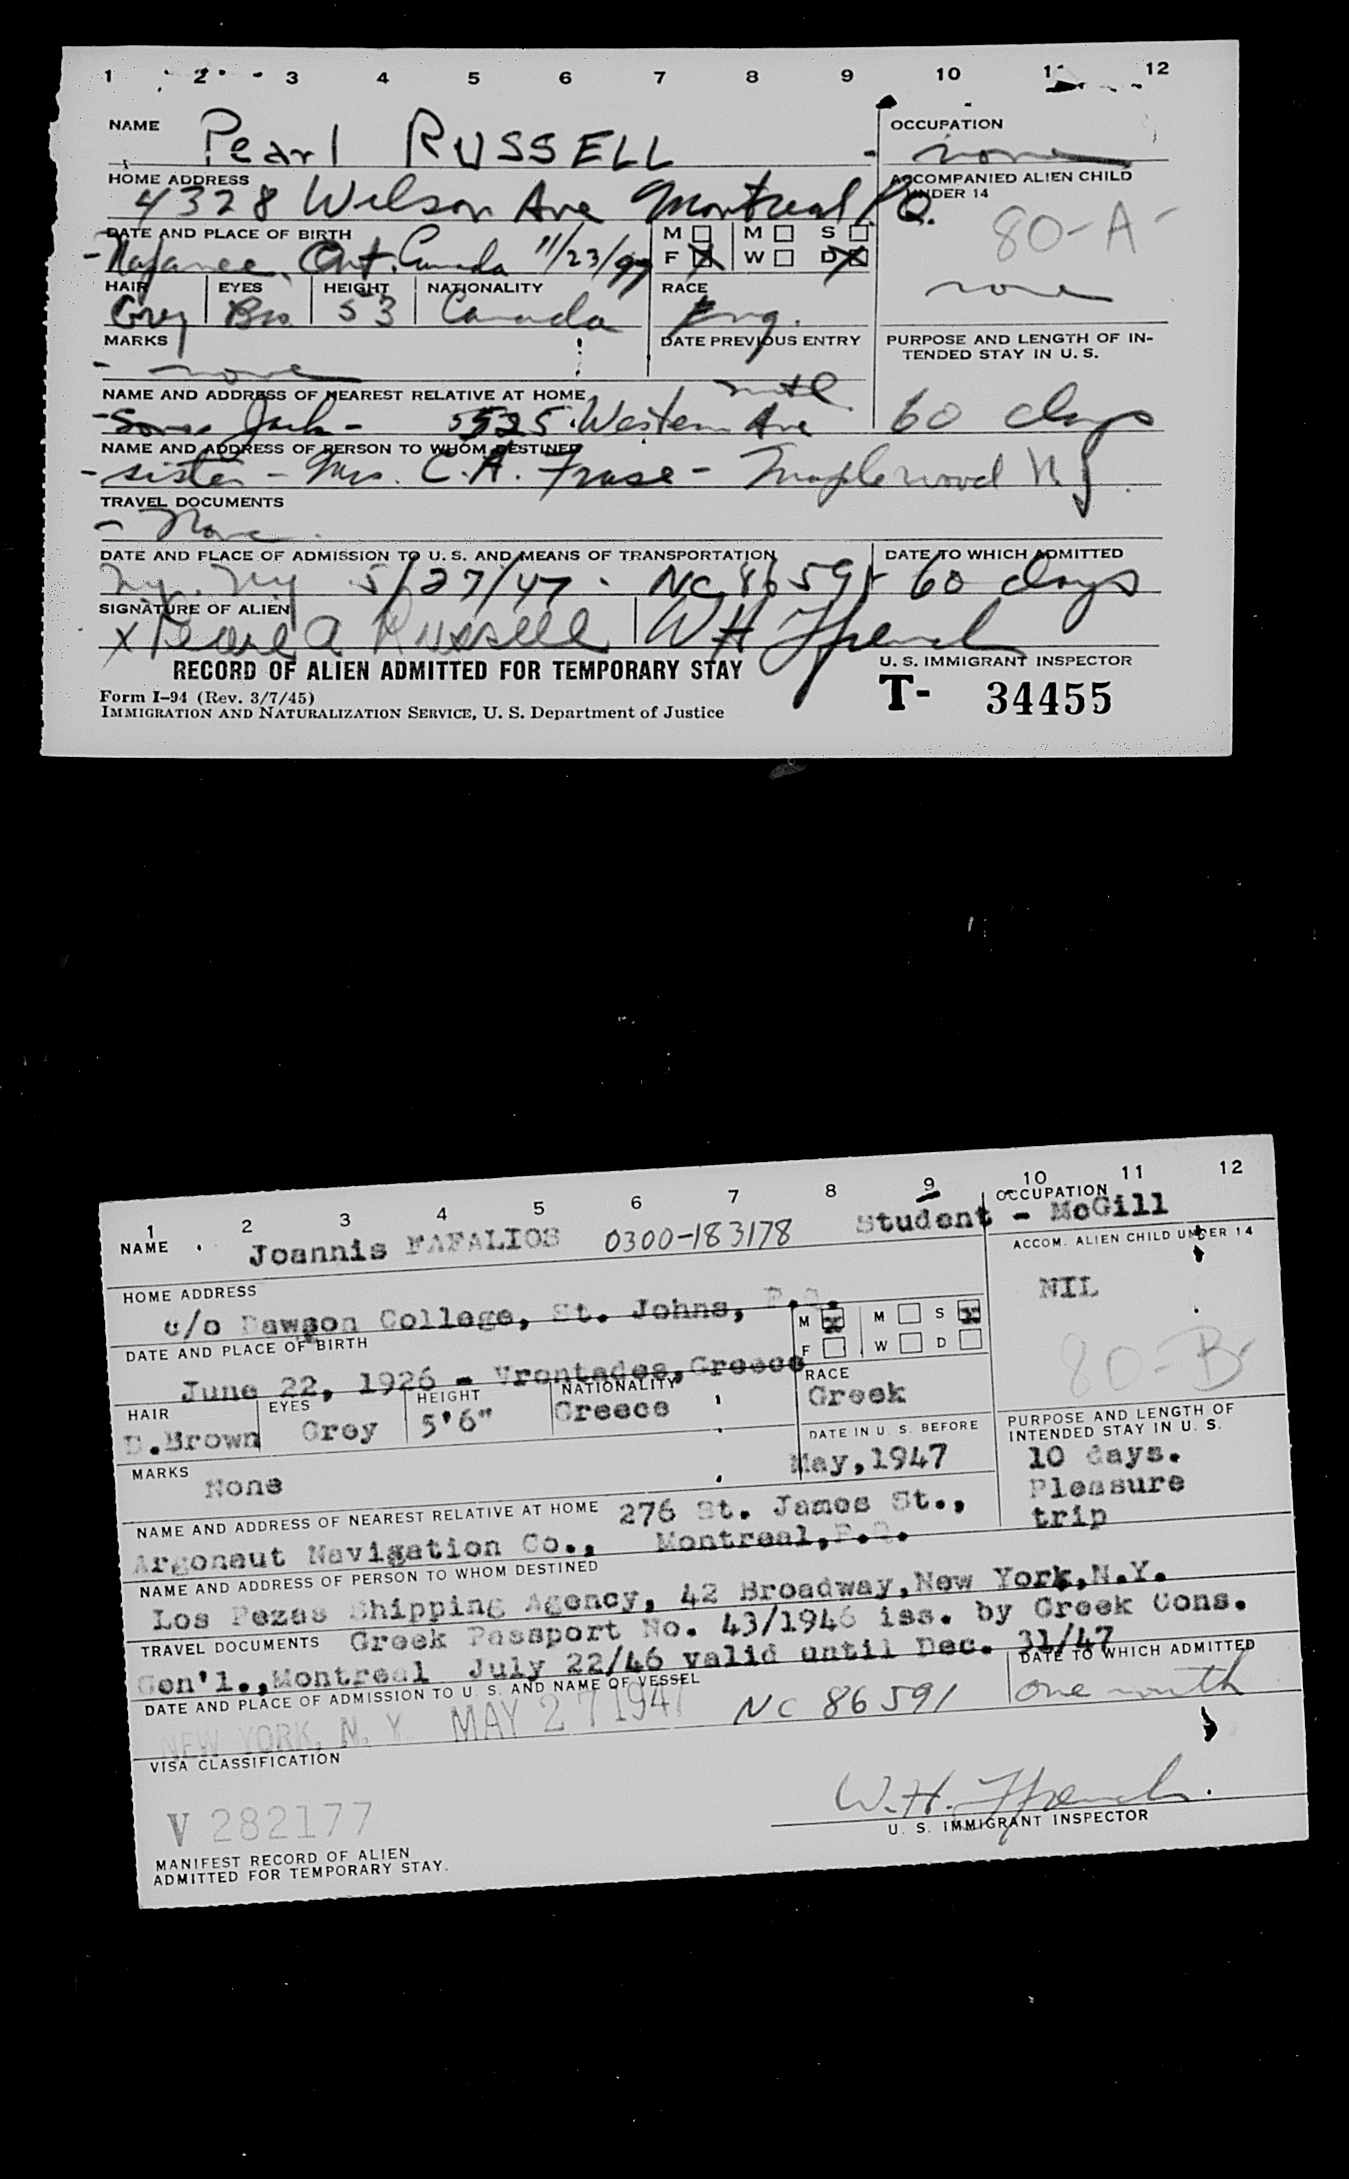 1 2 3 4 5 6 7 8 9 10 1 12
NAME Pearl RUSSELL OCCUPATION none
HOME ADDRESS 4328 Wilson Ave Montreal P.Q. ACCOMPANIED ALIEN CHILD UNDER 14
80-A-
none
DATE AND PLACE OF BIRTH M M S
Napanee, Ont. Canada 11/23/97 F W D
HAIR EYES HEIGHT NATIONALITY RACE
Grey Bro. 53 Canada Eng.
MARKS DATE PREVIOUS ENTRY PURPOSE AND LENGTH OF IN-
TENDED STAY IN U. S.
- none
NAME AND ADDRESS OF NEAREST RELATIVE AT HOME mtl.
Jack - 5525 Western Ave 60 days
NAME AND ADDRESS OF PERSON TO WHOM DESTINED
- sister - Mrs. C. A. - Maplewood NJ
TRAVEL DOCUMENTS
- None.
DATE AND PLACE OF ADMISSION TO U. S. AND MEANS OF TRANSPORTATION DATE TO WHICH ADMITTED
N.Y. N.Y. 5/27/47 - NC 86591 60 days
SIGNATURE OF ALIEN
x Pearl A Russell W H Ffrench
RECORD OF ALIEN ADMITTED FOR TEMPORARY STAY U. S. IMMIGRANT INSPECTOR
Form I-94 (Rev. 3/7/45)
IMMIGRATION AND NATURALIZATION SERVICE, U. S. Department of Justice T- 34455
1 2 3 4 5 6 7 8 9 10 11 12
NAME Joannis FAFALIOS 0300-183178 OCCUPATION Student - McGill
HOME ADDRESS ACCOM. ALIEN CHILD UNDER 14
c/o Dawson College, St. Johns, P.Q. NIL
M x M S x
DATE AND PLACE OF BIRTH F W D
June 22, 1926 - Vrontades, Greece 80-B-
HAIR EYES HEIGHT NATIONALITY RACE
D.Brown Grey 5'6" Greece Greek
MARKS None DATE IN U. S. BEFORE May, 1947
PURPOSE AND LENGTH OF
INTENDED STAY IN U. S.
10 days.
Pleasure
trip
NAME AND ADDRESS OF NEAREST RELATIVE AT HOME 276 St. James St.,
Argonaut Navigation Co., Montreal, P.Q.
NAME AND ADDRESS OF PERSON TO WHOM DESTINED
Los Pezas Shipping Agency, 42 Broadway, New York, N.Y.
TRAVEL DOCUMENTS Greek Passport No. 43/1946 iss. by Greek Cons.
Gen'l., Montreal July 22/46 valid until Dec. 31/47
DATE AND PLACE OF ADMISSION TO U. S. AND NAME OF VESSEL DATE TO WHICH ADMITTED
NEW YORK, N. Y. MAY 27 1947 NC 86591 one month
VISA CLASSIFICATION
V 282177 W. H. Ffrench.
U. S. IMMIGRANT INSPECTOR
MANIFEST RECORD OF ALIEN
ADMITTED FOR TEMPORARY STAY.